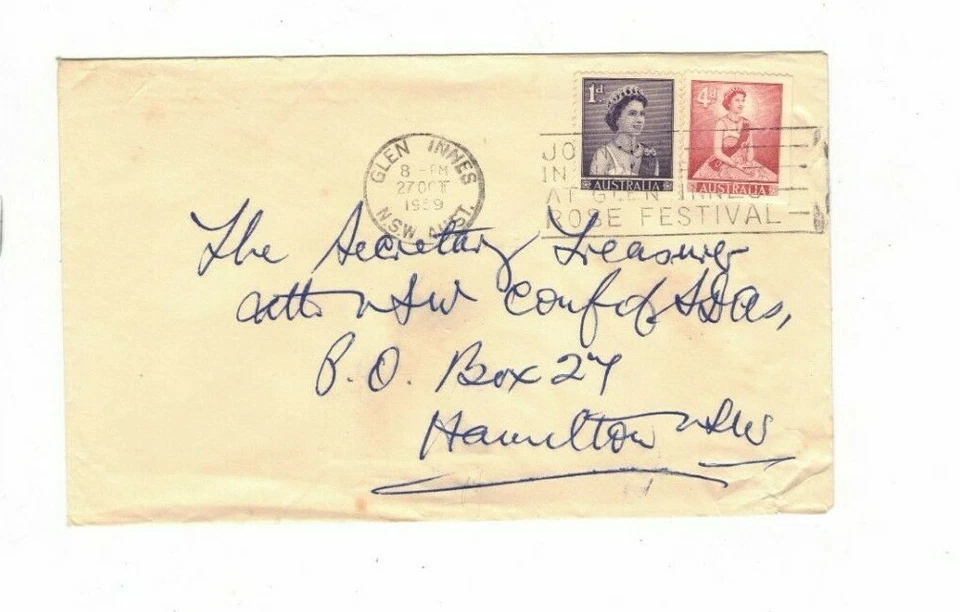 1d
4d
AUSTRALIA
AUSTRALIA
GLEN INNES
8 - PM
27 OCT
1959
N.S.W. AUST.
JO
IN
AT GLEN INNES
ROSE FESTIVAL
The Secretary Treasurer
Nth NSW Conf of SDAs,
P.O. Box 27
Hamilton NSW